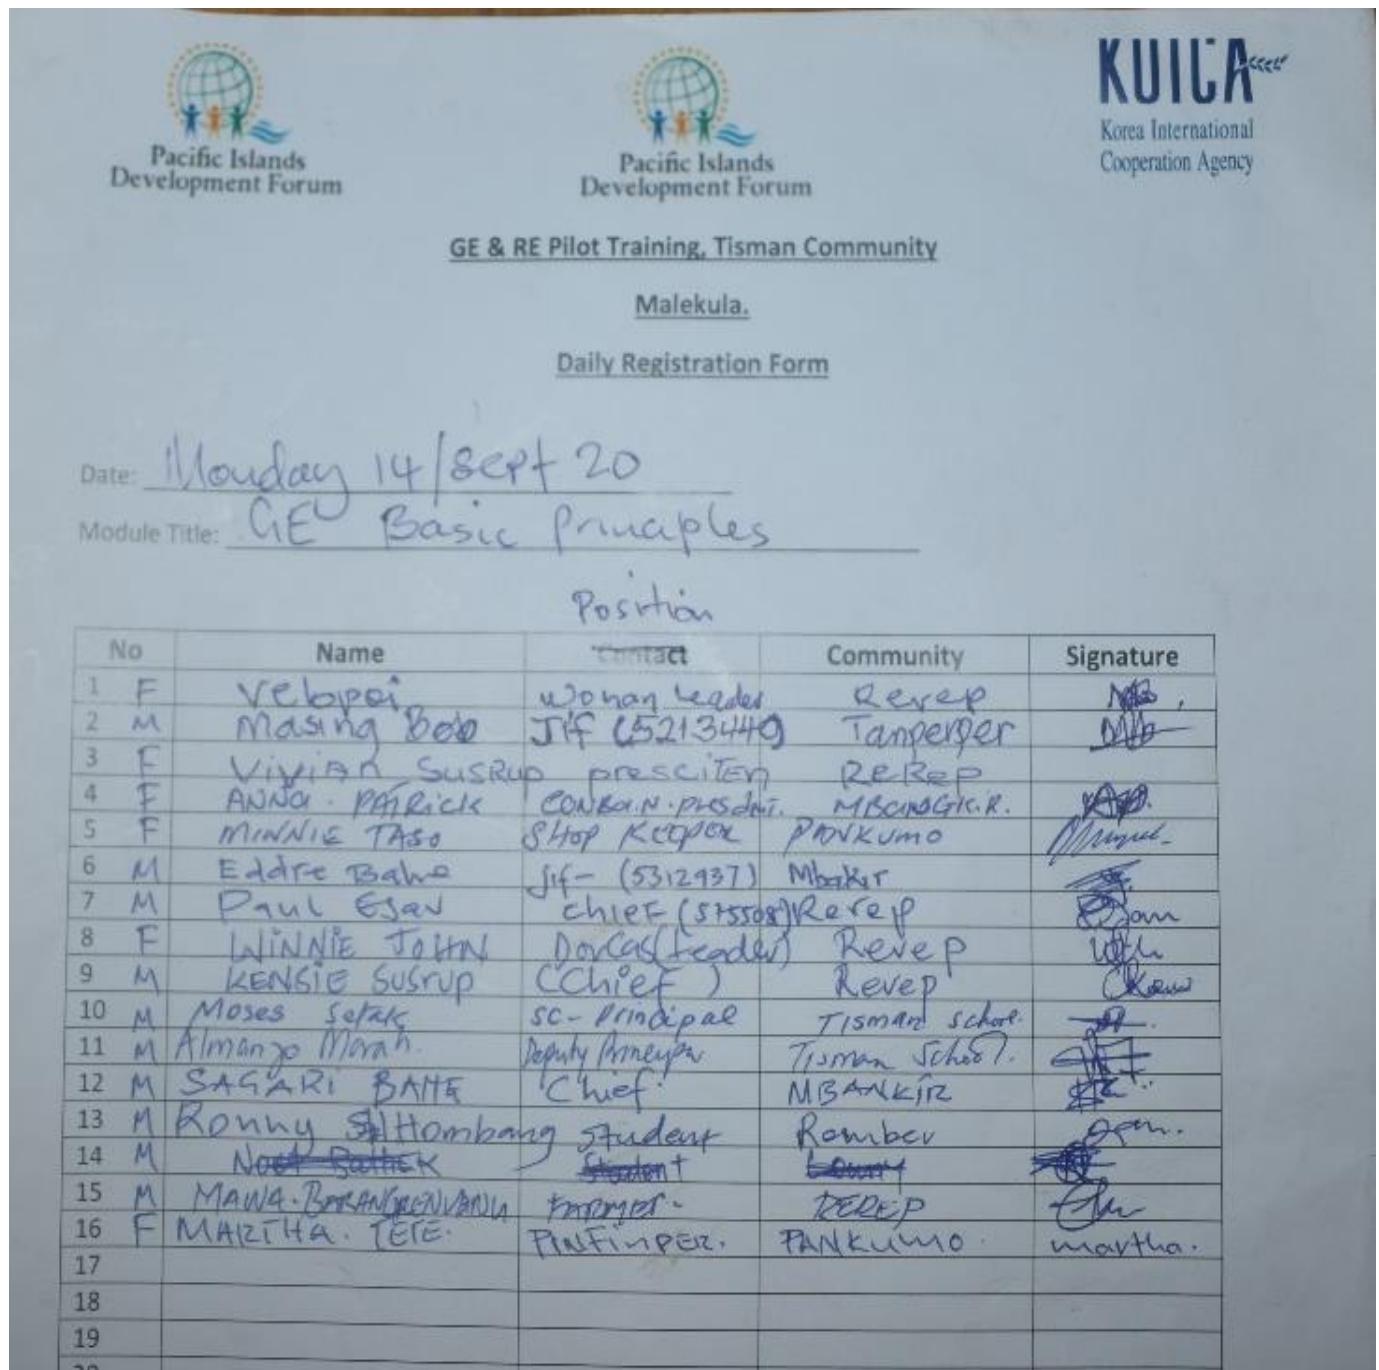 Pacific Islands
Development Forum
Pacific Islands
Development Forum
KOICA
Korea International
Cooperation Agency
GE & RE Pilot Training, Tisman Community
Malekula.
Daily Registration Form
Date: Monday 14/Sept 20
Module Title: GE Basic Principles
Position
No Name Contact Community Signature
1 F Velopei Woman Leader Rerep
2 M Masing Bob Jif (5213449) Tanperper
3 F Vivian Susrup presciten ReRep
4 F ANNA. PATRICK
5 F MINNIE TASO SHOP KEEPER PANKUMO
6 M Eddie Bahe jif- (5312937) Mbakir
7 M Paul Esau chief (575508) Rerep
8 F WINNIE JOHN Dorcas (Leader) Rerep
9 M KENSIE Susrup (Chief) Rerep
10 M Moses Selak SC-Principal Tisman School.
11 M Almanzo Morah. Deputy Principal Tisman School.
12 M SAGARI BAHE Chief MBANKIR
13 M Ronny Hombang Student Romber
14 M Student
15 M MAWA. Farmer- REREP
16 F MARTHA. TETE. PANKUMO martha.
17
18
19